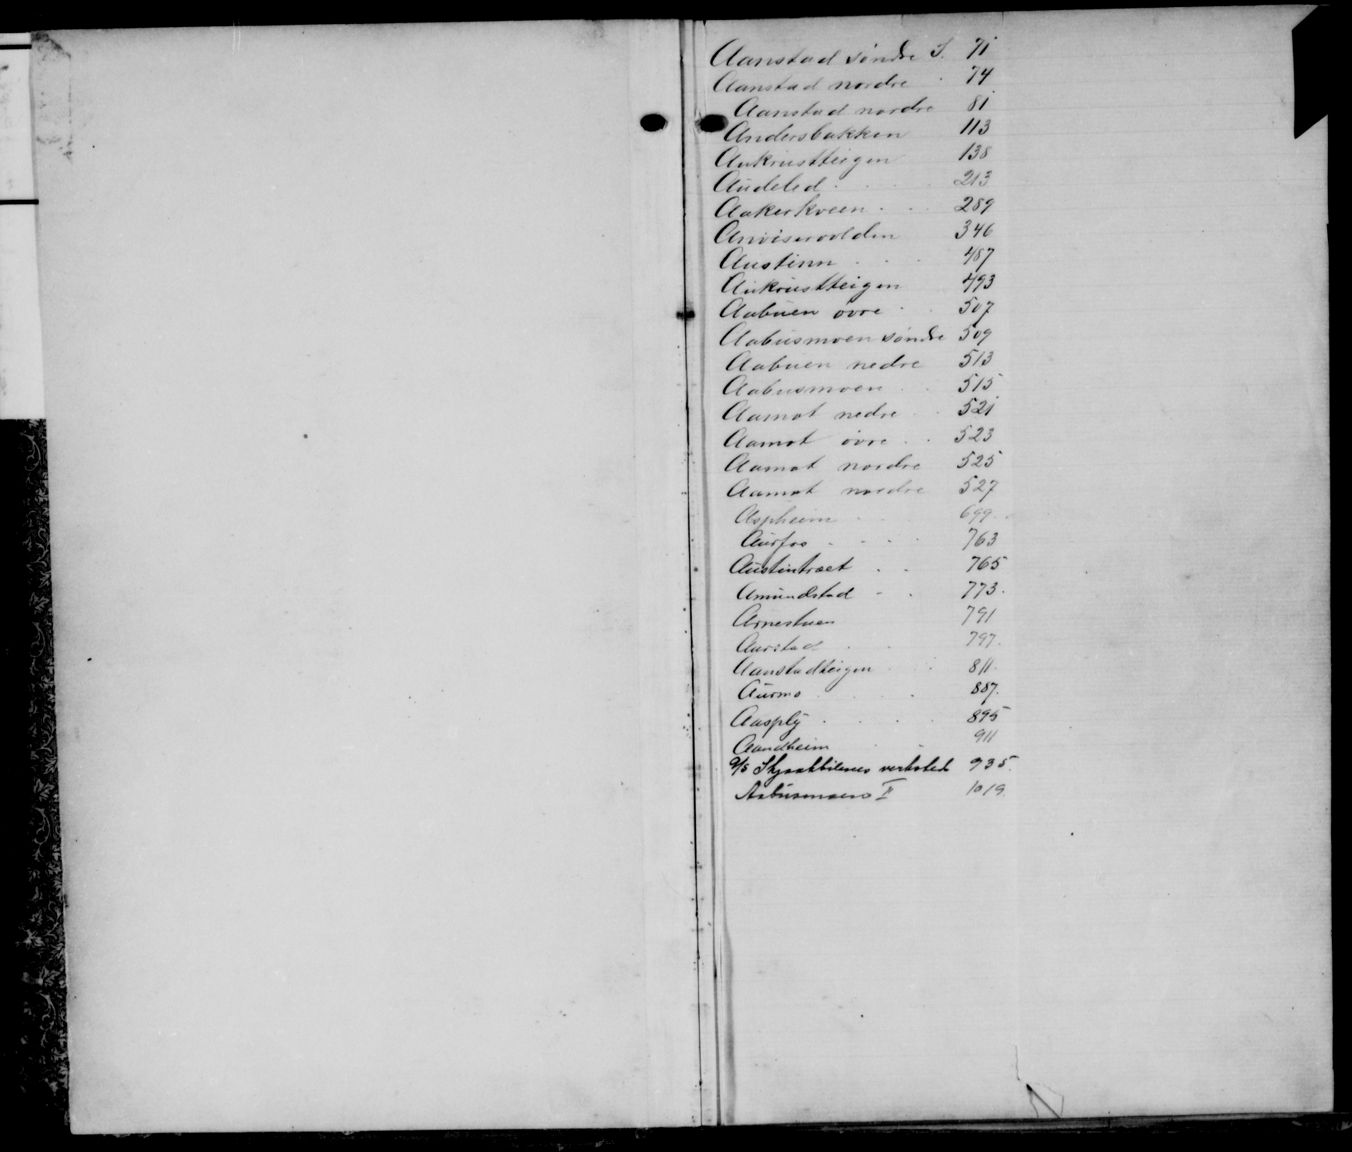 Aanstad søndre S. 71
Aanstad nordre 74
Aanstad nordre 81
Andersbakken 113
Aukrustteigen 138
Audeled 213
Aakerkveen 289
346
Austinn 487
Aukrustteigen 493
Aabuen övre 507
Aabusmoen söndre 509
Aabuen nedre 513
Aabusmoen 515
Aamot nedre 521
Aamot övre 523
Aamot nordre 525
Aamot nordre 527
Aspheim 699
Aurfos 763
Austintræet 765
Amundstad 773.
Arnestuen 791
Aurstad 797.
Aanstadteigen 811.
Aurmo 887.
Aasply 895
Aandheim 911
A/S Skjaakbilenes verksted 935.
Aabusmoen II 1019.